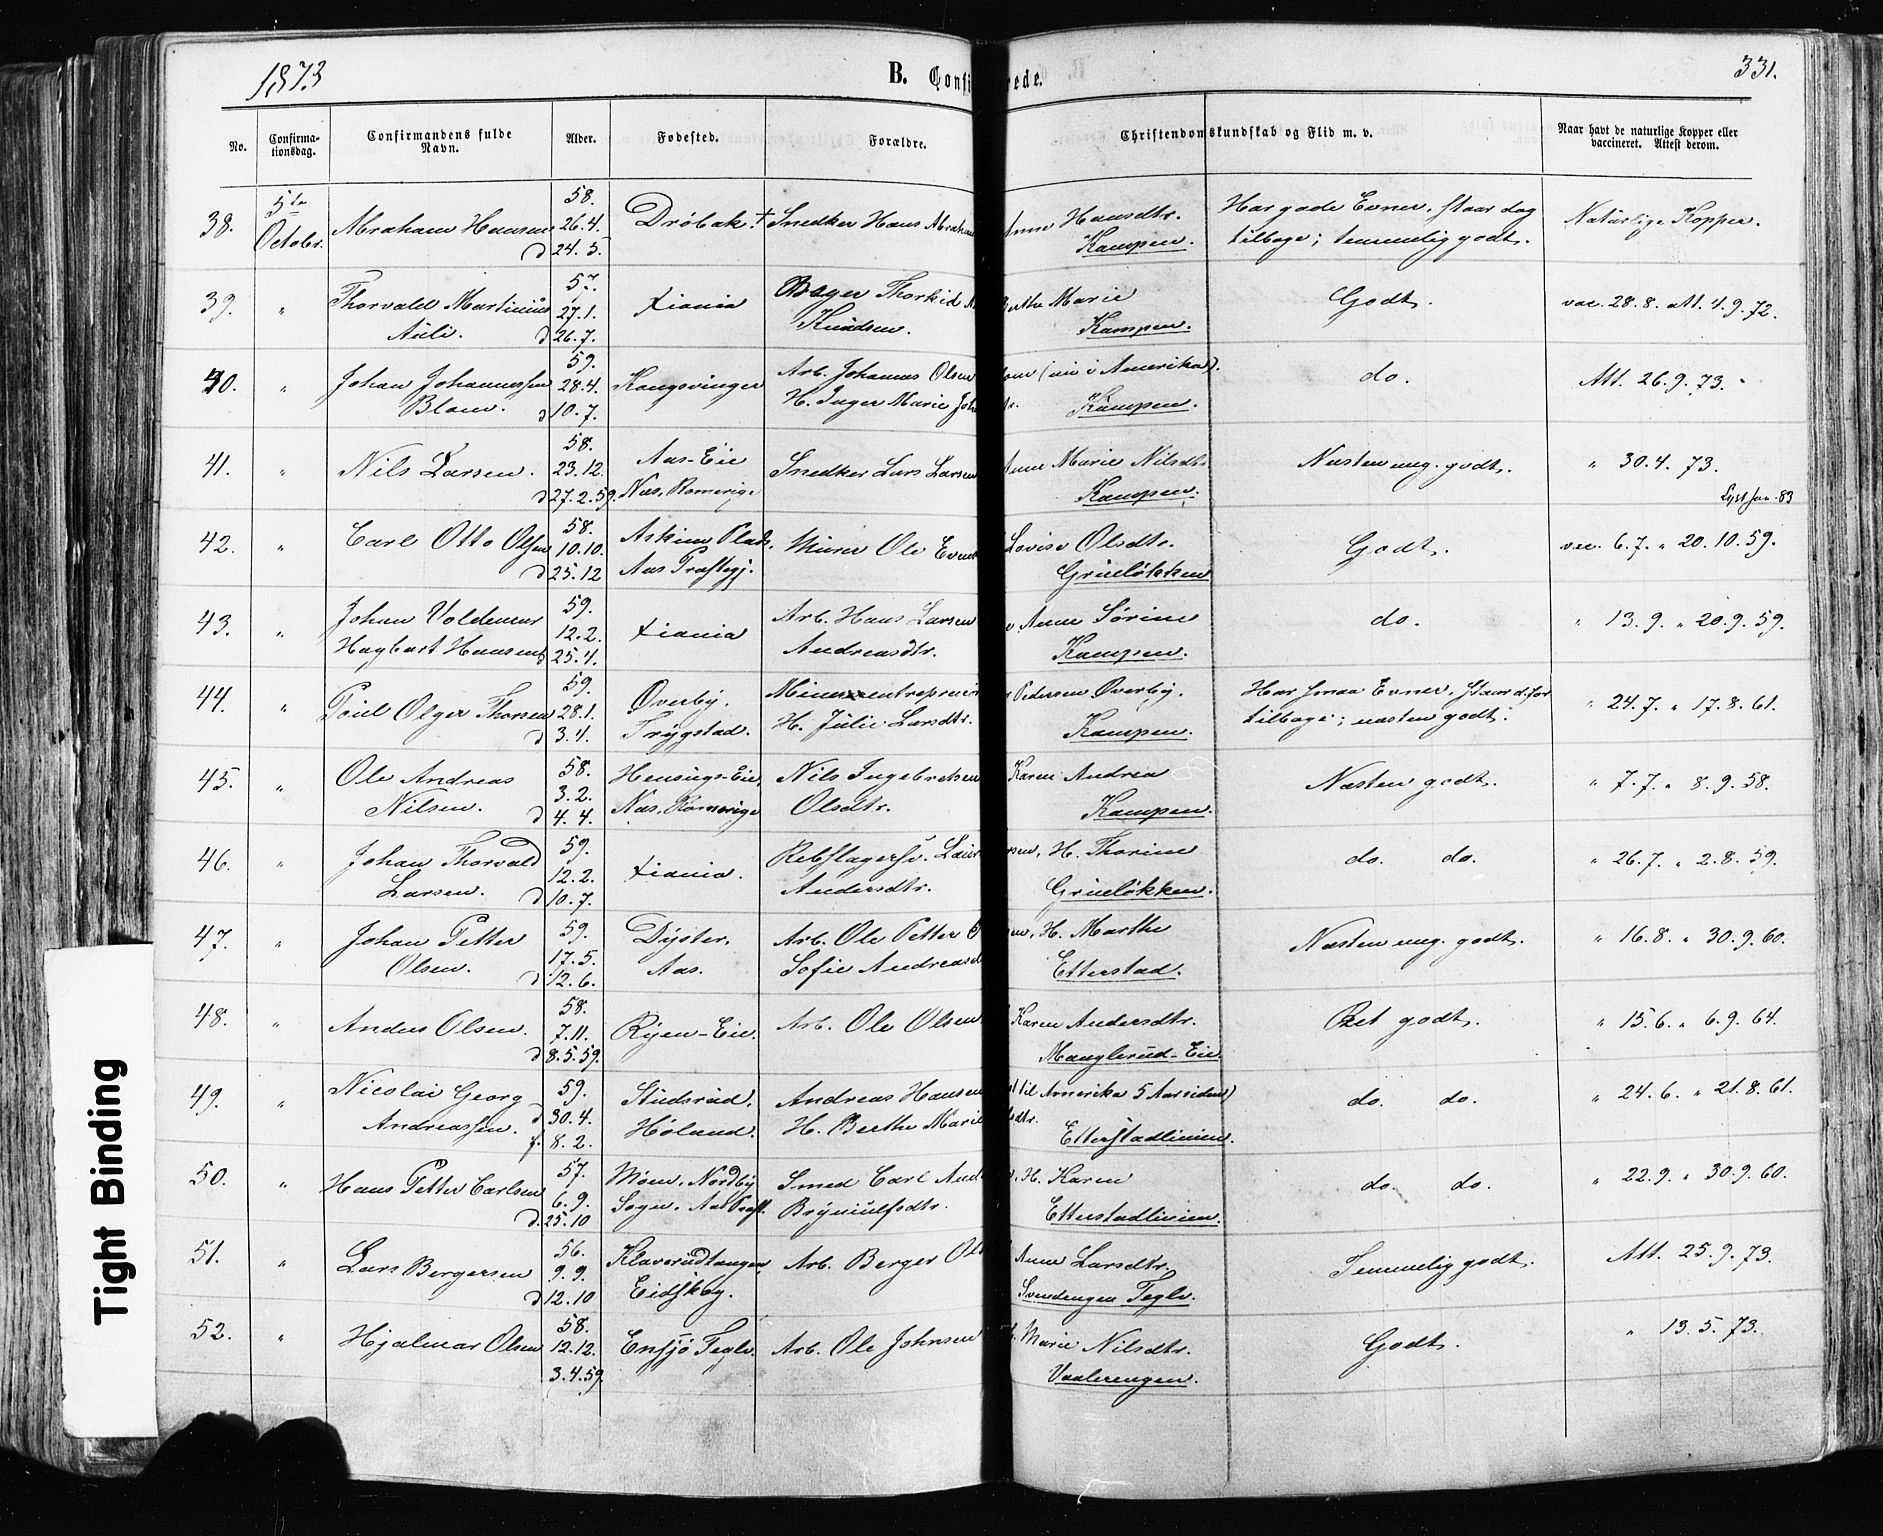 1873
B. Confi rede.
331.
No.
Confirma-
tionsdag.
Confirmandens fulde
Navn.
Alder.
Fødested.
Forældre.
Christendomskundskab og Flid m. v.
Naar havt de naturlige Kopper eller
vaccineret. Attest derom.
38. 5te Octobr. Abraham Hansen 58. 26.4. d 24.5. Drøbak. + Snedker Hans Abraham Anne Hansdtr. Kampen. Har gode Evner, staar dog tilbage; temmelig godt. Natürlige Kopper.
39. " Thorvald Martinius Auli. 57. 27.1. d 26.7. Xiania Thorkid Knudsen. Marie Kampen. Godt. vac. 28.8. att. 4.9.72.
40. " Johan Johannessen Blom. 59. 28.4. d 10.7. Kongsvinger Arb. Johannes Olsen Blom (nu i Amerika). H. Inger Marie Joh dtr. Kampen. do. Att. 26.9.73.
41. " Nils Larsen. 58. 23.12. d 27.2.59. Aas-Eie Næs, Romerige Snedker Lars Larsen Anne Marie Nilsdtr. Kampen. Næsten meg. godt. " 30.4.73. Lyst Jan. 83
42. " Carl Otto Olsen 58. 10.10. d 25.12 Askim Plads, Aas Præstegj. Murer Ole Lovise Olsdtr. Grüneløkken Godt. vac. 6.7. " 20.10.59.
43. " Johan Voldemar Hagbart Hansen 59. 12.2. d 25.4. Xiania Arb. Hans Larsen Anne Sørine Andreasdtr. Kampen. do. " 13.9. " 20.9.59.
44. " Poul Olger Thorsen 59. 28.1. d 3.4. Øverby, Trygstad. Pedersen Øverby. H. Julie Larsdtr. Kampen. Har smaa Evner, staar d.for tilbage; næsten godt. " 24.7. " 17.8.61.
45. " Ole Andreas Nilsen. 58. 3.2. d 4.4. Eie, Næs, Romerige Nils Ingebretsen Karen Andrea Olsdtr. Kampen. Næsten godt. " 7.7. " 8.9.58.
46. " Johan Thorvald Larsen. 59. 12.2. d 10.7. Xiania. Rebslagersv. Laur rsen, H. Thorine Andersdtr. Grüneløkken. do. do. " 26.7. " 2.8.59.
47. " Johan Petter Olsen. 59. 17.5. d 12.6. Dyster, Aas. Arb. Ole Petter O en, H. Marthe Sofie Andreasd Etterstad. Næsten meg. godt. " 16.8. " 30.9.60.
48. " Anders Olsen. 58. 7.11. d 8.5.59. Ryen-Eie. Arb. Ole Olsen Karen Andersdtr. Manglerud-Eie Ret godt. " 15.6. " 6.9.64.
49. " Nicolai Georg Andreassen. 59. d 30.4. f. 8.2. Studsrud, Høland. Andreas Hansen til Amerika 5 Aar siden) H. Berthe Marie dtr. Etterstadlinien. do. do. " 24.6. " 21.8.61.
50. " Hans Petter Carlsen 57. 6.9. d. 25.10 Moen, Nordby Sogn, Aas Præst. Smed Carl And H. Karen Brynulfsdtr. Etterstadlinien. do. do. " 22.9. " 30.9.60.
51. " Lars Bergersen 56. 9.9. d 12.10 Klaverudtangen, Eidskog. Arb. Berger Ol Anne Larsdtr. Svendengen Teglv. Temmelig godt. Att. 25.9.73.
52. " Hjalmar Olsen 58. 12.12. 3.4.59. Ensjø Teglv. Arb. Ole Johnsen Marie Nilsdtr. Vaalerengen. Godt. " 13.5.73.
Tight Binding